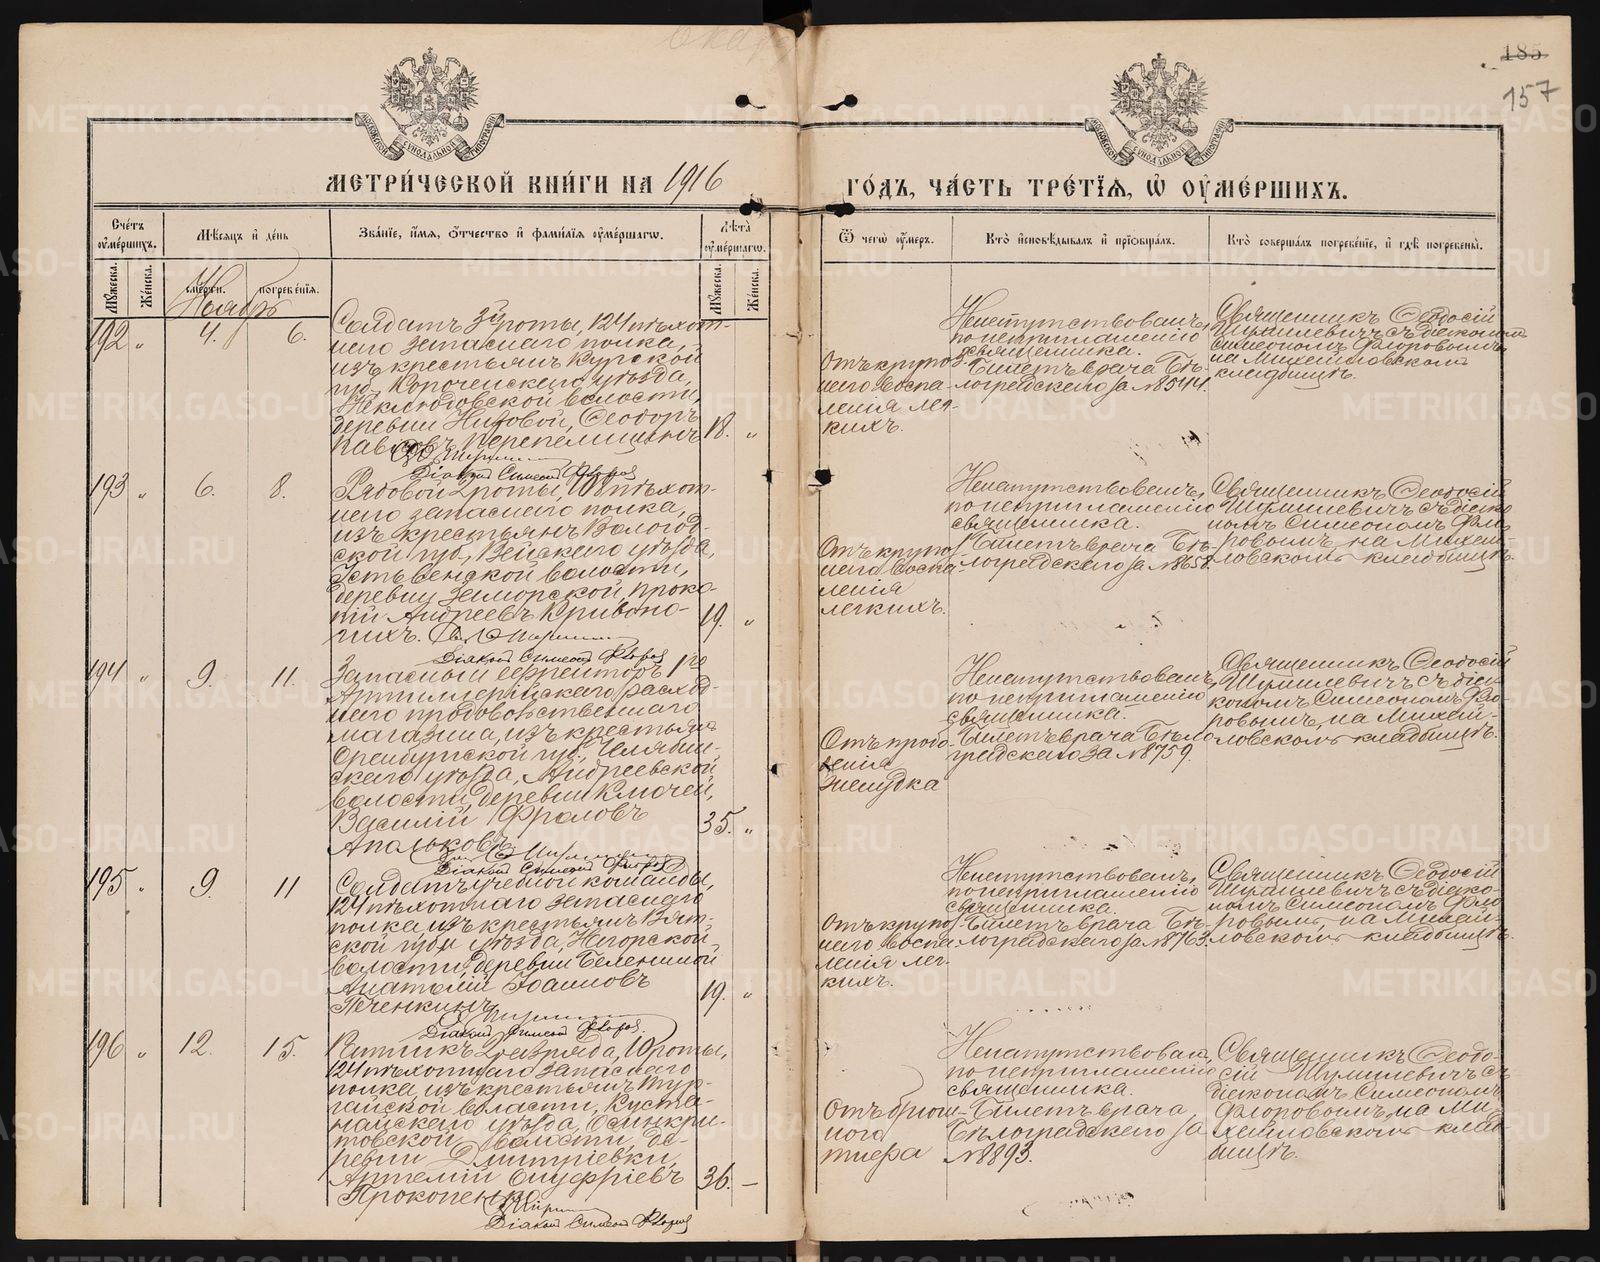 185
157
МЕТРИ́ЧЕСКОЙ КНИ́ГИ НА 1916
ГО́ДЪ, ЧА́СТЬ ТРЕ́ТЇѦ, Ѡ҆ ОУ҆МЕ́РШИХЪ.
Счетъ оумершихъ.
Мѣсяцъ и день
Званіе, имя, отчество и фамилія оумершагѡ.
Лѣта оумершагѡ.
Ѿ чегѡ оумеръ.
Кто исповѣдывалъ и пріобщалъ.
Кто совершалъ погребеніе, и гдѣ погребены.
Мужеска.
Женска.
смерти.
погребенія.
Мужеска.
Женска.
Ноябрь
192 „ 4. 6.
Солдатъ 3й роты, 124 пѣхот-
наго запаснаго полка,
изъ крестьянъ Курской
губ., Корочанскаго уѣзда,
Неклюдовской волости,
деревни Низовой, Ѳеодоръ
Павловъ Перепелицынъ
18. „
Діаконъ Симеонъ Флоровъ
Отъ крупоз-
наго воспа-
ленія лег-
кихъ.
Ненапутствованъ,
по неприглашенію
священника.
Билетъ врача Бѣ-
лоградскаго за №8544.
Священникъ Ѳеодосій
Шумилевичъ съ діакономъ
Симеономъ Флоровымъ,
на Михайловскомъ
кладбищѣ.
193 „ 6. 8.
Рядовой 2 роты, 108 пѣхот-
наго запаснаго полка,
изъ крестьянъ Вологод-
ской губ., Вельскаго уѣзда,
Устьвенской волости,
деревни Заморской, Проко-
пій Андреевъ Кривоно-
гихъ.
19. „
Діаконъ Симеонъ Флоровъ
Отъ крупоз-
наго воспа-
ленія
легкихъ.
Ненапутствованъ,
по неприглашенію
священника.
Билетъ врача Бѣ-
лоградскаго за №8658.
Священникъ Ѳеодосій
Шумилевичъ съ діако-
номъ Симеономъ Фло-
ровымъ, на Михай-
ловскомъ кладбищѣ.
194 „ 9. 11.
Запасный ефрейторъ 1го
Артиллерійскаго расход-
наго продовольственнаго
магазина, изъ крестьянъ
Оренбургской губ., Челябин-
скаго уѣзда, Андреевской
волости, деревни Ключей,
Василій Фроловъ
Апальковъ
35. „
Діаконъ Симеонъ Флоровъ
Отъ пробо-
денія
желудка
Ненапутствованъ,
по неприглашенію
священника.
Билетъ врача Бѣло-
градскаго за №8759.
Священникъ Ѳеодосій
Шумилевичъ съ діа-
кономъ Симеономъ Фло-
ровымъ, на Михай-
ловскомъ кладбищѣ.
195 „ 9. 11
Солдатъ учебной команды,
124 пѣхотнаго запаснаго
полка изъ крестьянъ Вят-
ской губ. и уѣзда, Нагорской
волости, деревни Белениной
Анатолій Іоанновъ
Печенкинъ
19. „
Діаконъ Симеонъ Флоровъ.
Отъ крупоз-
наго воспа-
ленія лег-
кихъ.
Ненапутствованъ,
по неприглашенію
священника.
Билетъ врача Бѣ-
лоградскаго за №8763.
Священникъ Ѳеодосій
Шумилевичъ съ діако-
номъ Симеономъ Фло-
ровымъ, на Михай-
ловскомъ кладбищѣ.
196 „ 12. 15.
Ратникъ 2 разряда, 10 роты,
124 пѣхотнаго запаснаго
полка, изъ крестьянъ Тур-
гайской области, Куста-
найскаго уѣзда,
волости, де-
ревни Дмитріевки,
Артемій Онуфріевъ
Прокопенко
36. —
Діаконъ Симеонъ Флоровъ
Отъ брюш-
ного
тифа
Ненапутствованъ,
по неприглашенію
священника.
Билетъ врача
Бѣлоградскаго за
№8893.
Священникъ Ѳеодо-
сій Шумилевичъ съ
діакономъ Симеономъ
Флоровымъ, на Ми-
хайловскомъ клад-
бищѣ.